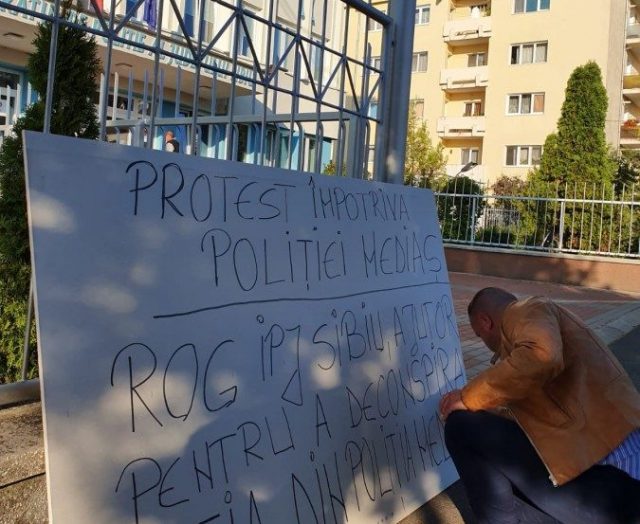 PROTEST ÎMPOTRIVA
POLIȚIEI MEDIAȘ
ROG IPJ SIBIU, AJUTOR
PENTRU A DECONSPIRA
DIN POLIȚIA